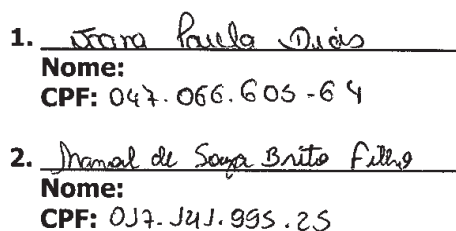 1. Joana Paula Dias
Nome:
CPF: 047.066.605-64
2. Manoel de Souza Brito Filho
Nome:
CPF: 017.141.995.25